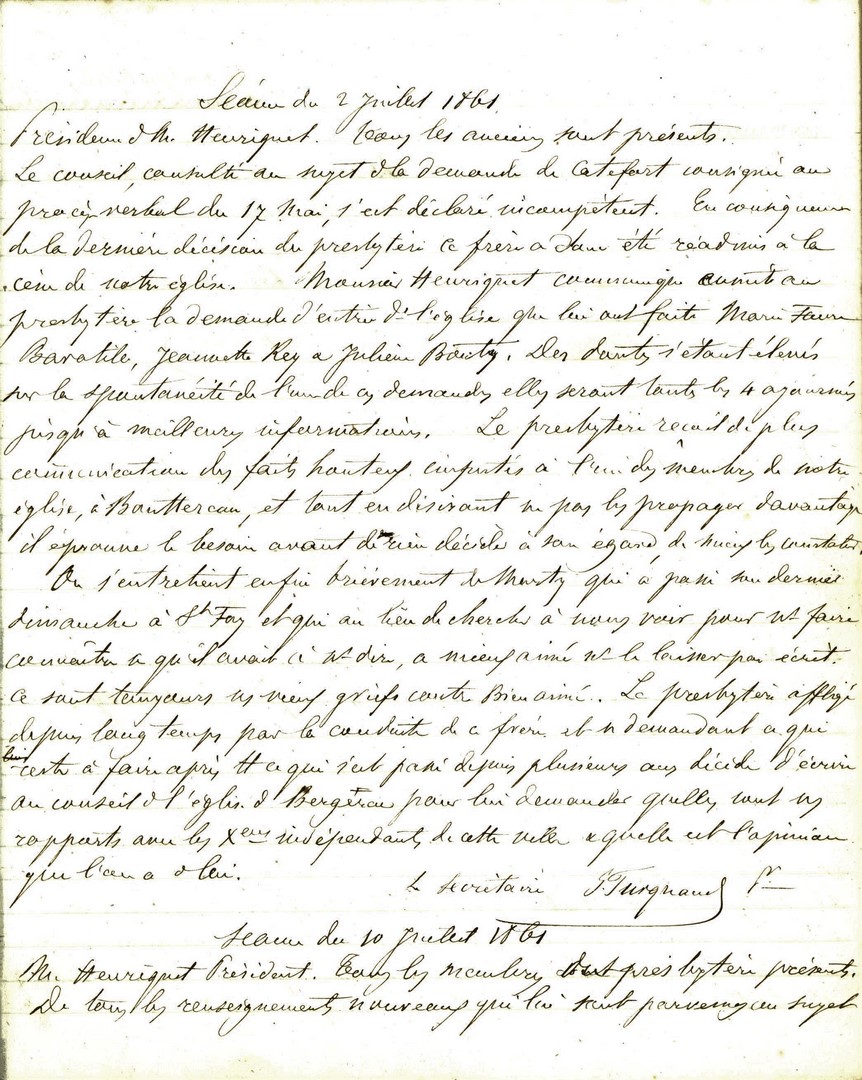 Séance du 2 Juillet 1861.
Présidence d M. Henriquet. Tous les anciens sont présents.
Le conseil, consulté au sujet d la demande de Catefort consignée au
procès verbal du 17 mai, s'est déclaré incompétent. En conséquence
de la dernière décision du presbytère ce frère a donc été réadmis à la
cène de notre église. Monsieur Henriquet communique ensuite au
presbytère la demande d'entrée ds l'église que lui ont faite Marie Faure
Baratile, Jeannette Rey & Julien Bouty. Des doutes s'étant élevés
sur la spontanéité de l'une de ces demandes elles seront toutes les 4 ajournées
jusqu'à meilleures informations. Le presbytère reçoit de plus
communication des faits honteux imputés à l'un des membres de notre
église, à Bouttereau, et tout en désirant ne pas les propager davantage
il éprouve le besoin avant de rien décider à son égard, de mieux les constater.
On s'entretient enfin brièvement de Marty qui a passé son dernier
dimanche à Ste Foy et qui au lieu de chercher à nous voir pour ns faire
connaître ce qu'il avait à ns dire, a mieux aimé ns le laisser par écrit.
Ce sont toujours ses vieux griefs contre Bienaimé. Le presbytère affligé
depuis longtemps par la conduite de ce frère et se demandant ce qui
lui reste à faire après tt ce qui s'est passé depuis plusieurs ans décide d'écrire
au conseil d l'église d Bergerac pour lui demander quelles sont ses
rapports avec les Xens indépendants de cette ville & quelle est l'opinion
que l'on a d lui.
Le secrétaire Turgnand
Séance du 10 Juillet 1861
M. Henriquet Président. Tous les membres du presbytère présents.
De tous les renseignements nouveaux qui lui sont parvenus au sujet